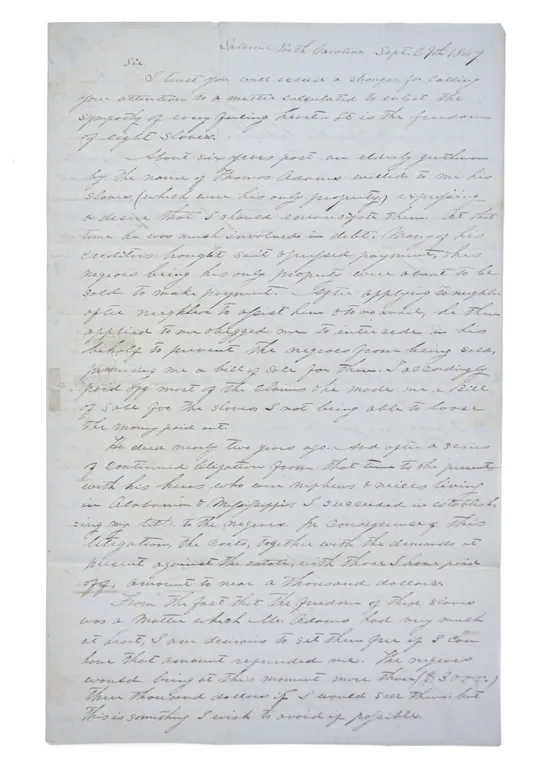 Salem North Carolina Sept. 29th 1849
Sir.
I trust you will excuse a stranger for calling
your attention to a matter calculated to enlist the
sympathy of every feeling heart. It is the freedom
of eight slaves.
About six years past an elderly gentleman
by the name of Thomas Adams willed to me his
slaves, (which were his only property,) expressing
a desire that I should emancipate them. At that
time he was much involved in debt. Many of his
creditors brought suit & pressed payment, & his
negroes being his only property were about to be
sold to make payment. After applying to neighbor
after neighbor to assist him & to no avail, he then
applied to me & begged me to intercede in his
behalf to prevent the negroes from being sold,
promising me a bill of sale for them. I accordingly
paid off most of the claims & he made me a bill
of sale for the slaves I not being able to loose
the money paid out.
He died nearly two years ago. And after a series
of continued litigation from that time to the present
with his heirs who were nephews & nieces living
in Alabama & Mississippi, I succeeded in establish-
ing my title to the negroes. In consequence of this
litigation, the costs, together with the demands at
present against the estate, with those I have paid
off, amount to near a thousand dollars.
From the fact that the freedom of these slaves
was a matter which Mr. Adams had very much
at heart, I am desirous to set them free if I can
have that amount refunded me. The negroes
would bring at this moment more than ($3000.)
three thousand dollars if I would sell them: but
this is something I wish to avoid if possible.